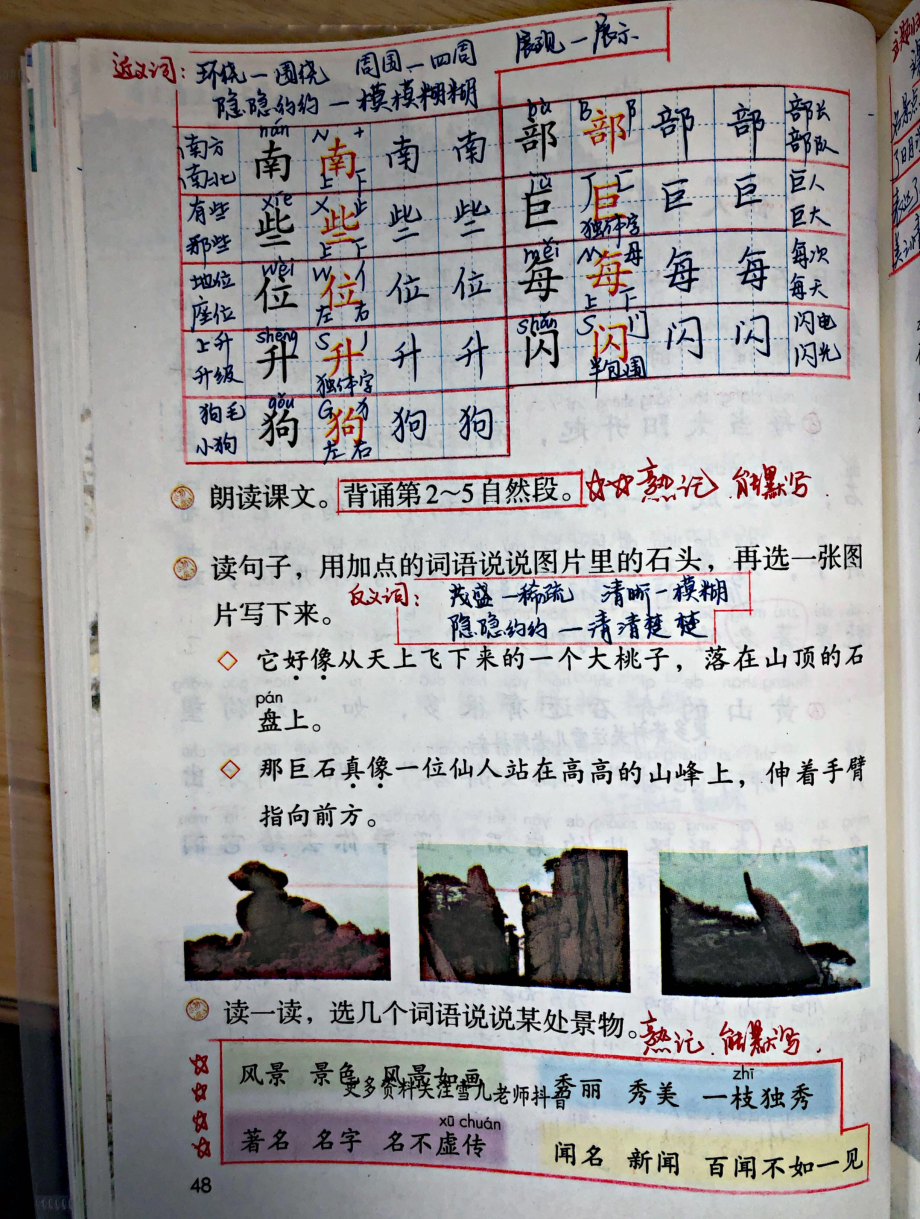 近义词：环绕—围绕 周围—四周 展现—展示
隐隐约约—模模糊糊
nán bù
南方 南北 南 N 十 南 上 下 南 南 部 B 阝 部 部 部 部长 部队
xiē jù
有些 那些 些 X 止 些 上 下 些 些 巨 J 匚 巨 独体字 巨 巨 巨人 巨大
wèi měi
地位 座位 位 W 亻 位 左 右 位 位 每 M 母 每 上 下 每 每 每次 每天
shēng shǎn
上升 升级 升 S 丿 升 独体字 升 升 闪 S 门 闪 半包围 闪 闪 闪电 闪光
gǒu
狗毛 小狗 狗 G 犭 狗 左 右 狗 狗
朗读课文。背诵第2～5自然段。熟记 能默写
读句子，用加点的词语说说图片里的石头，再选一张图
片写下来。 反义词：茂盛—稀疏 清晰—模糊
隐隐约约—清清楚楚
它好像从天上飞下来的一个大桃子，落在山顶的石
pán
盘上。
那巨石真像一位仙人站在高高的山峰上，伸着手臂
指向前方。
读一读，选几个词语说说某处景物。熟记 能默写
风景 景色 风景如画
zhī
秀丽 秀美 一枝独秀
更多资料关注雪儿老师抖音
xū chuán
著名 名字 名不虚传
闻名 新闻 百闻不如一见
48